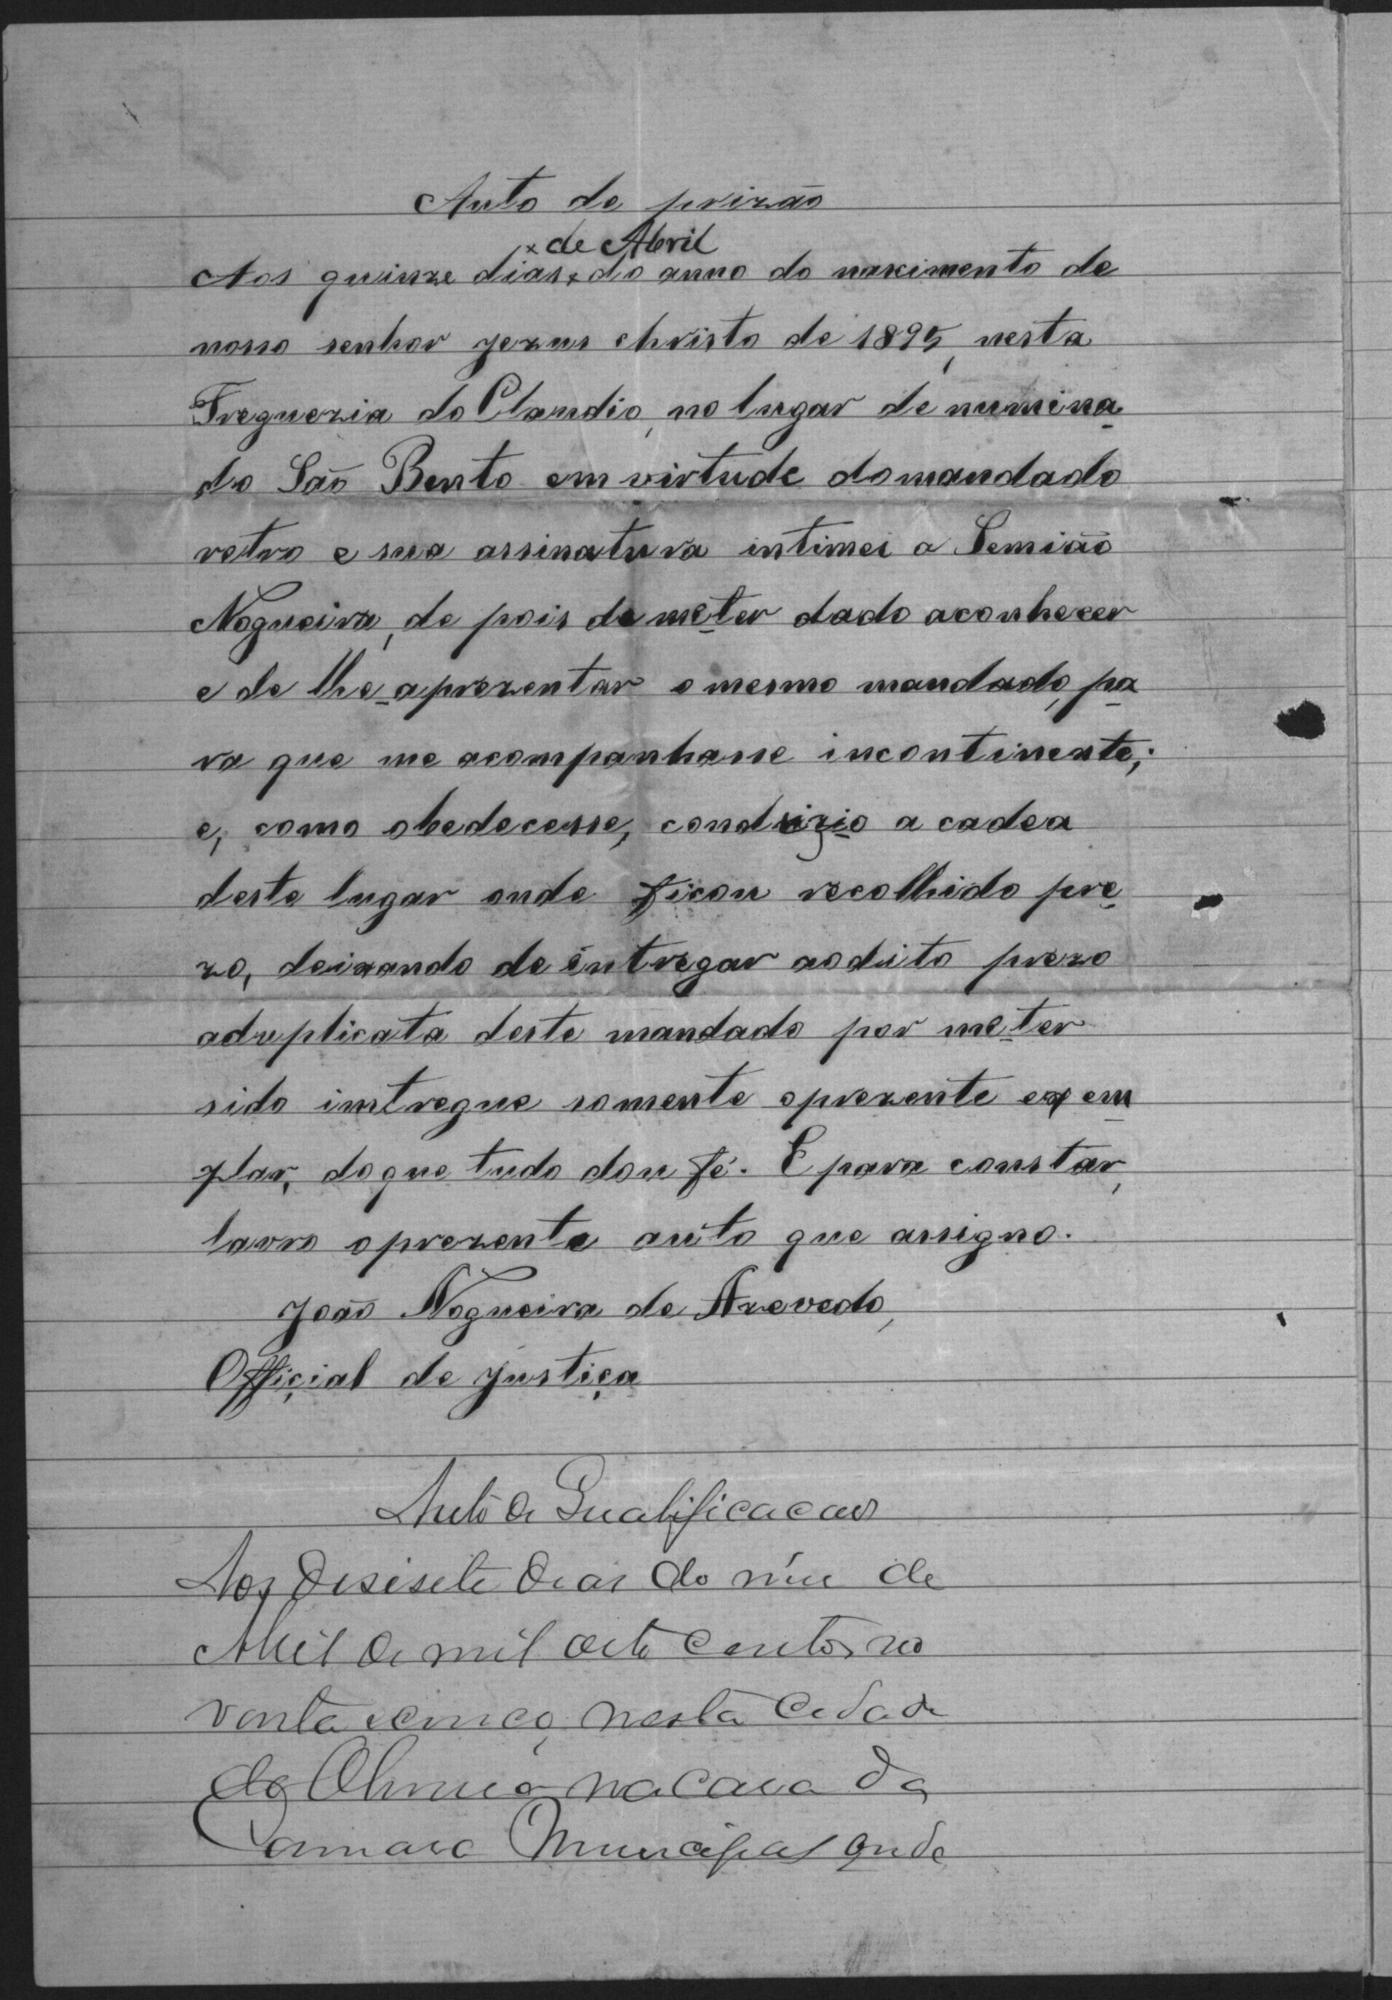 Auto de prizão
× de Abril
Aos quinze dias × do anno do nascimento de
nosso senhor jezus christo de 1895, nesta
Freguezia do Claudio, no lugar denumina
do São Bento em virtude do mandado
retro e sua assinatura intimei a Semião
Nogueira, de pois de me ter dado aconhecer
e de lhe aprezentar o mesmo mandado, pa
ra que me acompanhasse incontinente;
e, como obedecesse, conduzio a cadea
deste lugar onde ficou recolhido pre
zo, deixando de entregar ao dito prezo
aduplicata deste mandado por me ter
sido imtregue somente oprezente exem
plar, do que tudo dou fé. E para constar,
lavro oprezente auto que assigno.
João Nogueira de Azevedo,
Official de justiça
Auto de Qualificacao
Aos desisete dias do mes de
Abril de mil oito centos no
venta e cinco, nesta Cidade
de Oliveira na Casa da
Camara Municipal onde